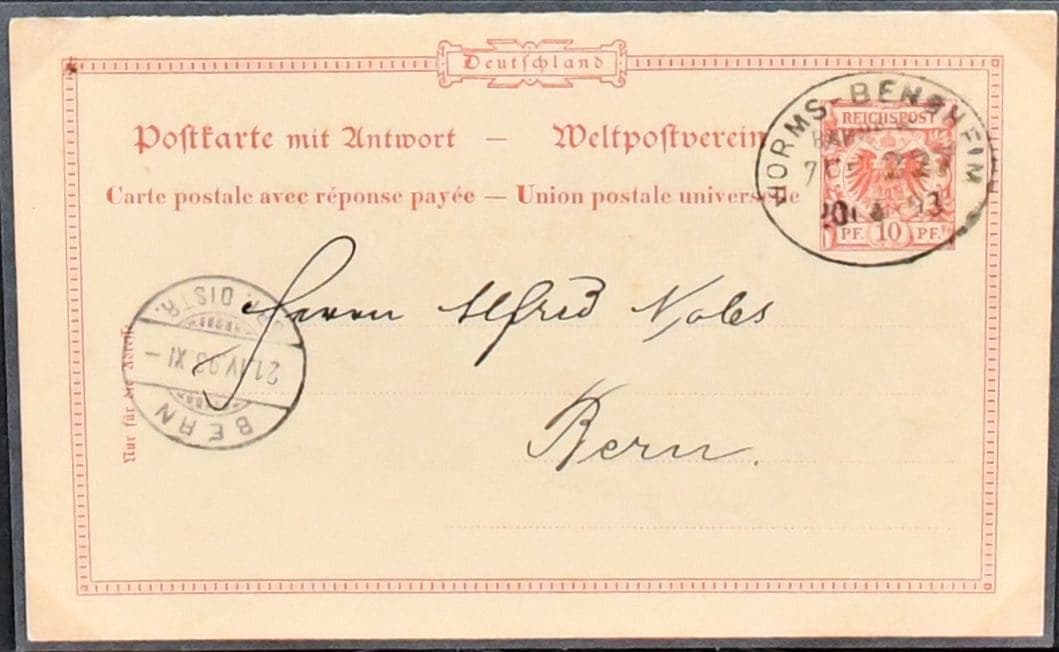 Deutschland
Postkarte mit Antwort — Weltpostverein
Carte postale avec réponse payée — Union postale universelle
WORMS-BENSHEIM
20 4 93
REICHSPOST
PF. 10 PF.
Herrn Alfred Nobs
Bern.
Nur für die Adresse
BERN
21.IV.93 XI —
DISTR.